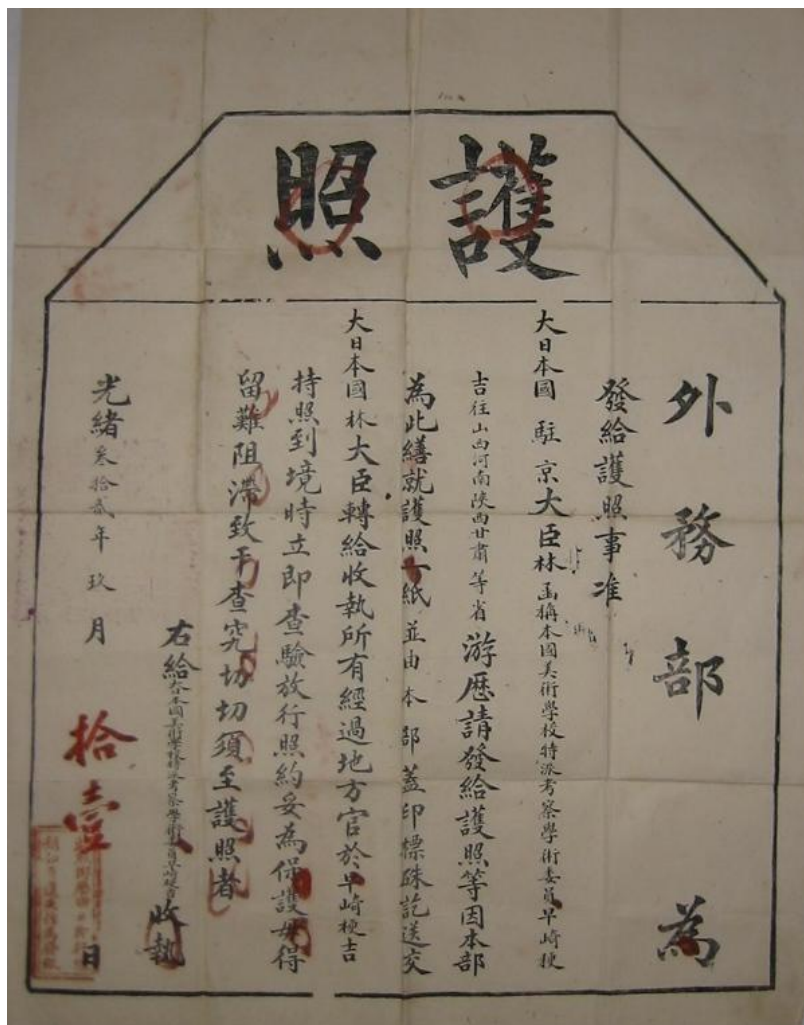 護照
外務部為
發給護照事准
大日本國駐京大臣林函稱本國美術學校特派考察學術委員早崎梗
吉往山西河南陝西甘肅等省游歷請發給護照等因本部
為此繕就護照一紙並由本部蓋印標硃訖送交
大日本國林大臣轉給收執所有經過地方官於早崎梗吉
持照到境時立即查驗放行照約妥為保護毋得
留難阻滯致干查究切切須至護照者
右給本國美術學校特派考察學術委員早崎梗吉收執
光緒叁拾貳年玖月拾壹日